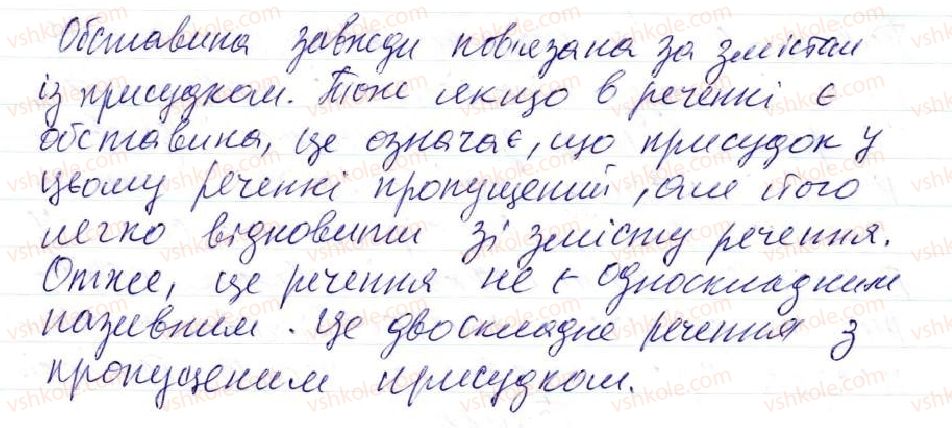 Обставина завжди пов'язана за змістом
із присудком. Тож якщо в реченні є
обставина, це означає, що присудок у
цьому реченні пропущений, але його
легко відновити зі змісту речення.
Отже, це речення не є односкладним
називним. Це двоскладне речення з
пропущеним присудком.